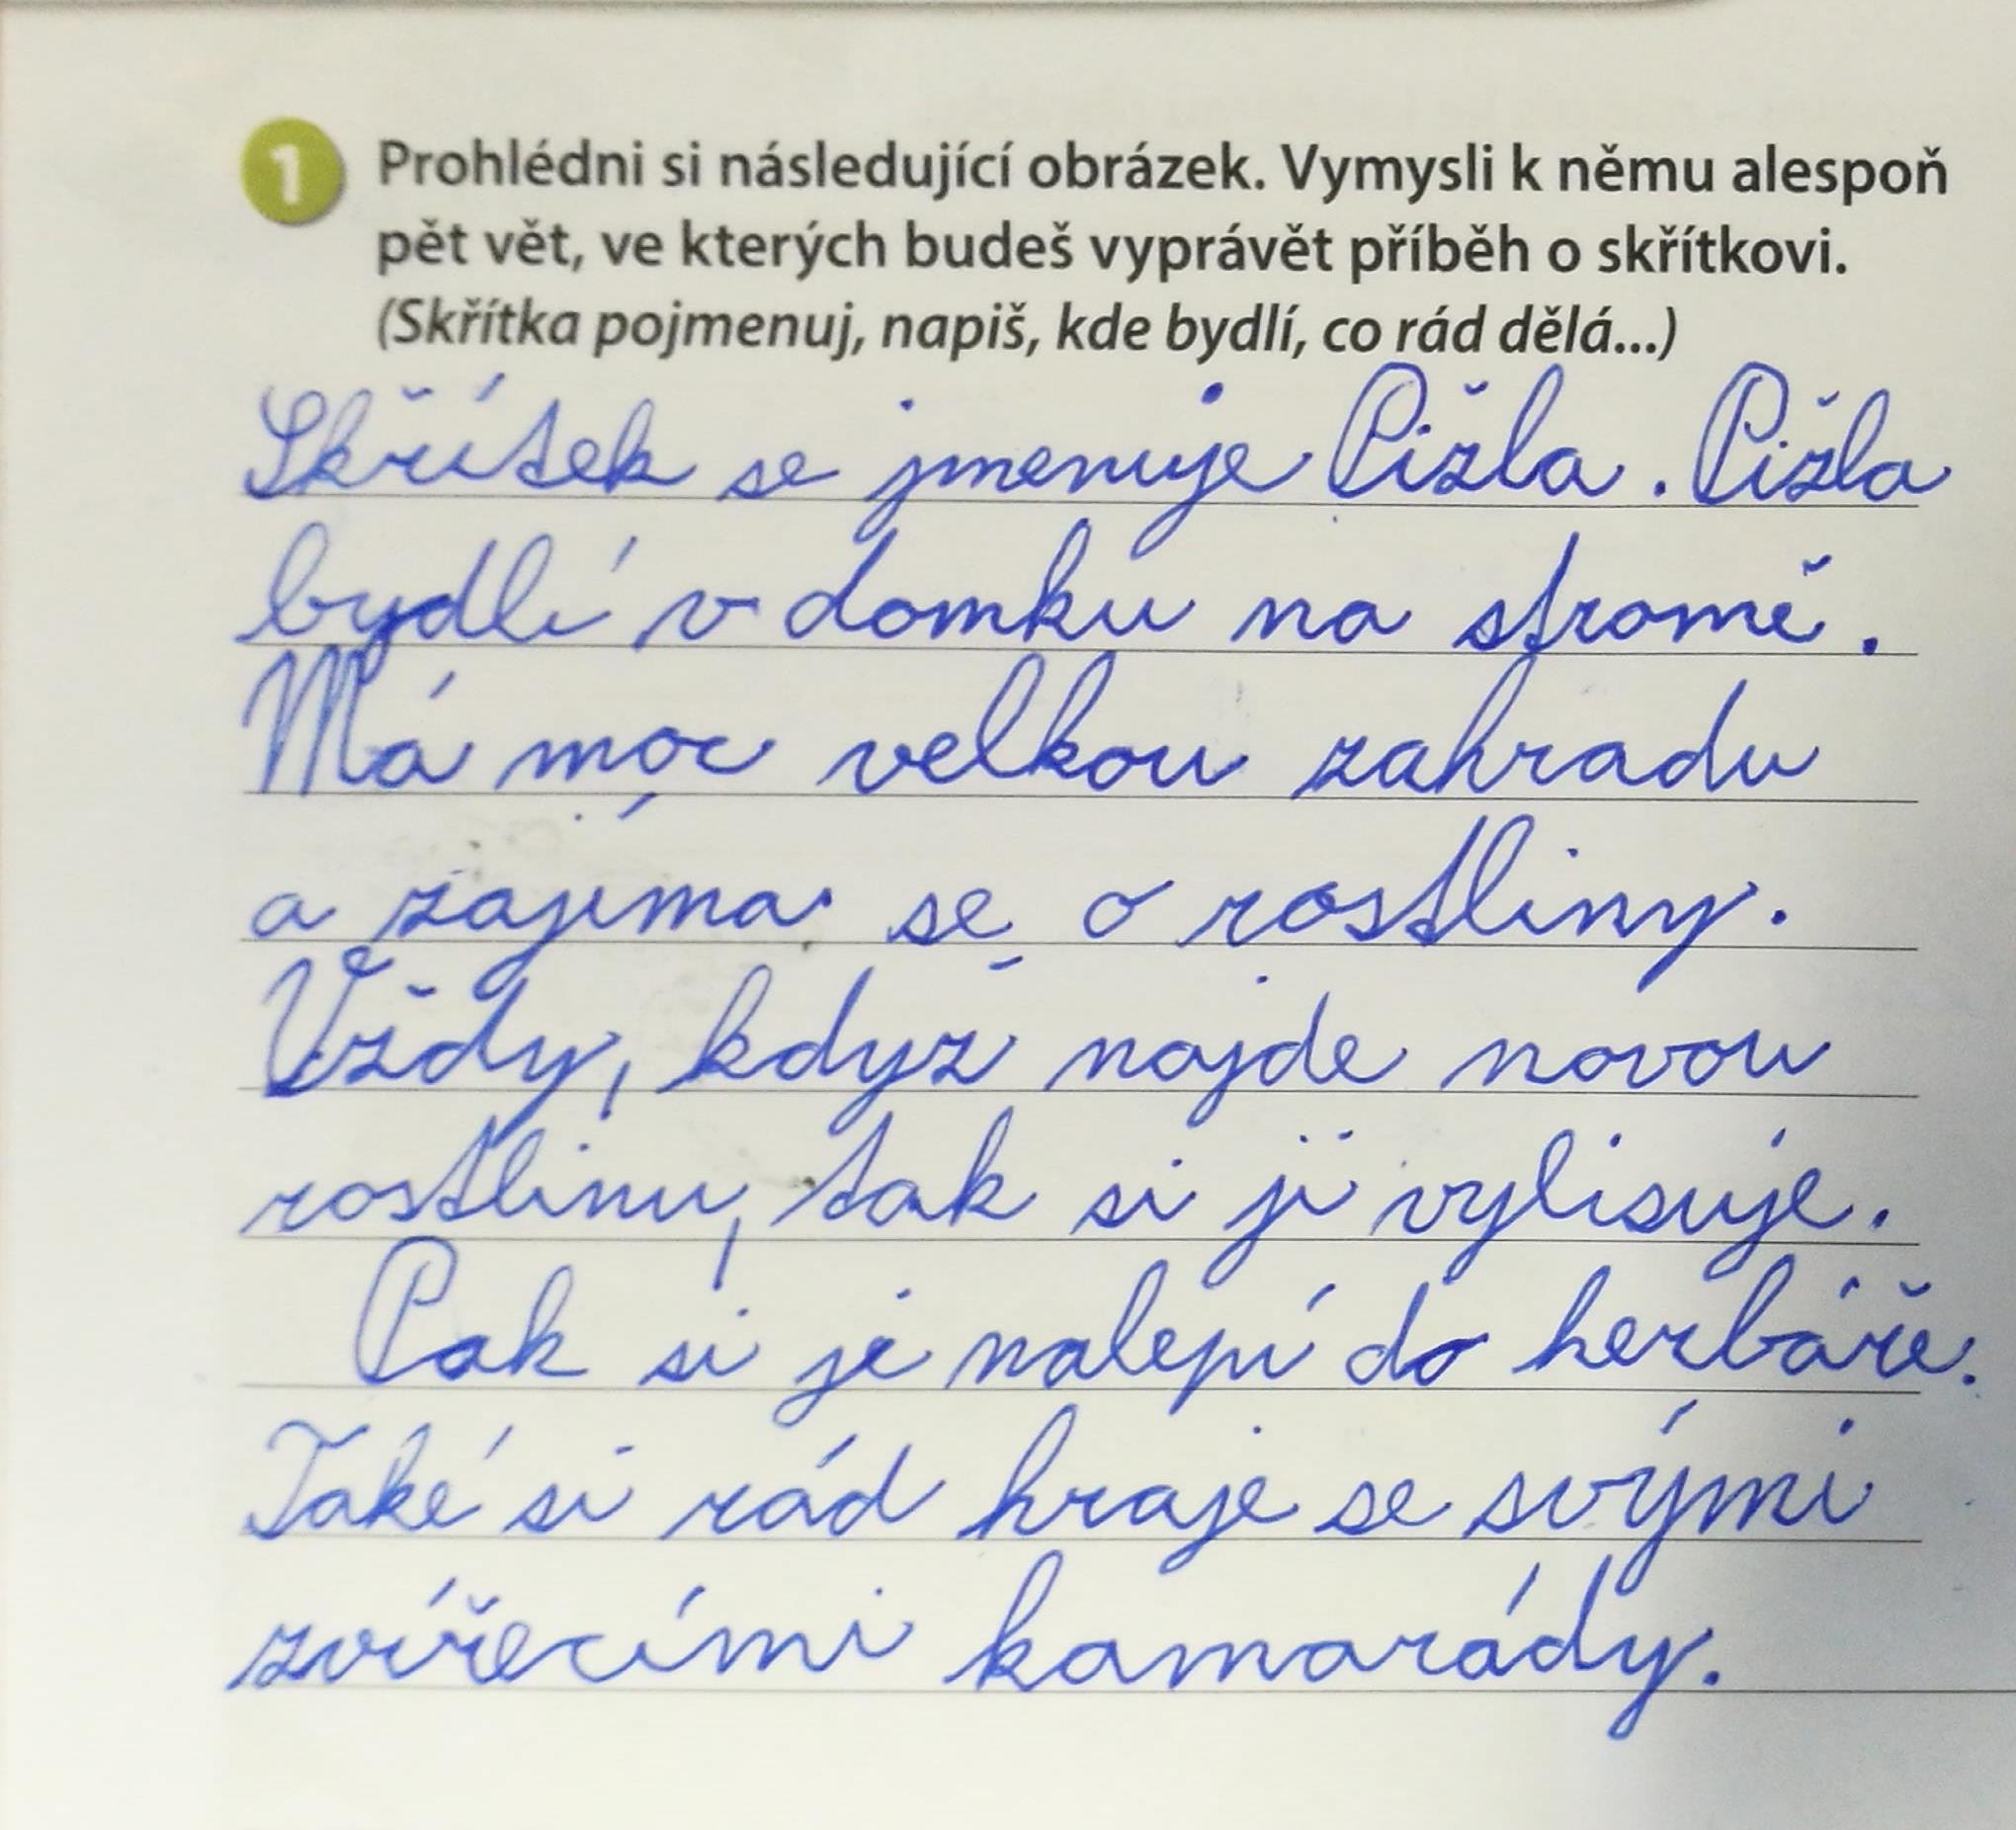 1 Prohlédni si následující obrázek. Vymysli k němu alespoň
pět vět, ve kterých budeš vyprávět příběh o skřítkovi.
(Skřítka pojmenuj, napiš, kde bydlí, co rád dělá...)
Skřítek se jmenuje Pižla. Pižla
bydlí v domku na stromě.
Má moc velkou zahradu
a zajímá se o rostliny.
Vždy, když najde novou
rostlinu, tak si ji vylisuje.
Pak si je nalepí do herbáře.
Také si rád hraje se svými
zvířecími kamarády.